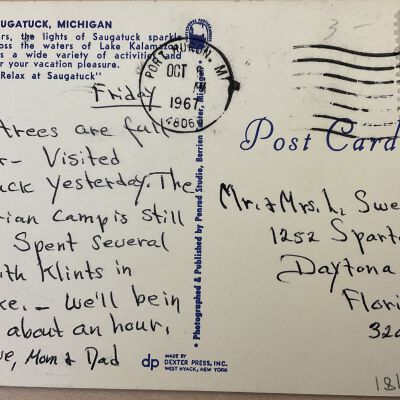 AUGATUCK, MICHIGAN
rs, the lights of Saugatuck sparkle
oss the waters of Lake Kalamazoo
s a wide variety of activities and
r your vacation pleasure.
Relax at Saugatuck"
Friday
trees are full
r- Visited
uck yesterday. The
rian Camp is still
Spent several
ith Klints in
ke. - We'll be in
about an hour.
ve, Mom & Dad
PORT HURON, MI
OCT
PM
1967
4806
• Photographed & Published by Penrod Studio, Berrien Center, Michigan •
dp
MADE BY
DEXTER PRESS, INC.
WEST NYACK, NEW YORK
3-
Post Card
Mr. & Mrs. L. Swe
1252 Sparto
Daytona
Flori
320
181